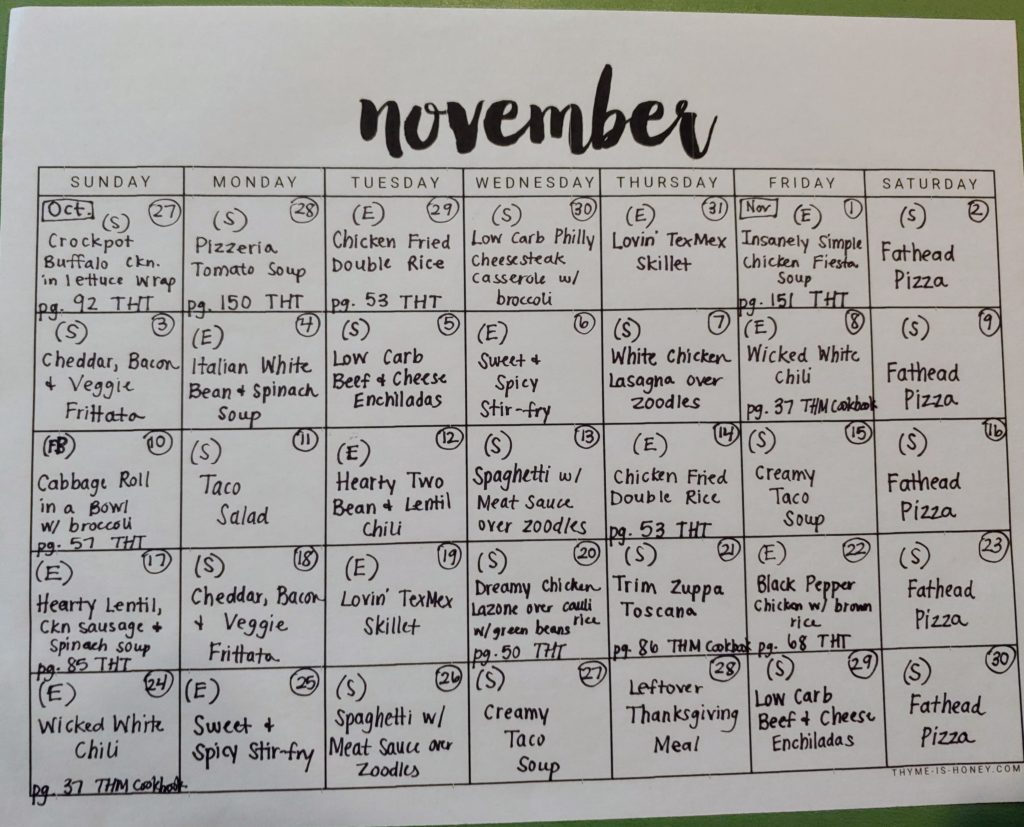 november
SUNDAY MONDAY TUESDAY WEDNESDAY THURSDAY FRIDAY SATURDAY
Oct. (S) 27
Crockpot
Buffalo ckn.
in lettuce wrap
pg. 92 THT
(S) 28
Pizzeria
Tomato Soup
pg. 150 THT
(E) 29
Chicken Fried
Double Rice
pg. 53 THT
(S) 30
Low Carb Philly
Cheesesteak
Casserole w/
broccoli
(E) 31
Lovin' TexMex
Skillet
Nov (E) 1
Insanely Simple
Chicken Fiesta
Soup
pg. 151 THT
(S) 2
Fathead
Pizza
(S) 3
Cheddar, Bacon
+ Veggie
Frittata
(E) 4
Italian White
Bean + Spinach
Soup
(S) 5
Low Carb
Beef + Cheese
Enchiladas
(E) 6
Sweet +
Spicy
Stir-fry
(S) 7
White Chicken
Lasagna over
zoodles
(E) 8
Wicked White
Chili
pg. 37 THM Cookbook
(S) 9
Fathead
Pizza
(FB) 10
Cabbage Roll
in a Bowl
w/ broccoli
pg. 57 THT
(S) 11
Taco
Salad
(E) 12
Hearty Two
Bean + Lentil
Chili
(S) 13
Spaghetti w/
Meat Sauce
over zoodles
(E) 14
Chicken Fried
Double Rice
pg. 53 THT
(S) 15
Creamy
Taco
Soup
(S) 16
Fathead
Pizza
(E) 17
Hearty Lentil,
Ckn sausage +
Spinach soup
pg. 85 THT
(S) 18
Cheddar, Bacon
+ Veggie
Frittata
(E) 19
Lovin' TexMex
Skillet
(S) 20
Dreamy Chicken
Lazone over cauli
rice
w/green beans
pg. 50 THT
(S) 21
Trim Zuppa
Toscana
pg. 86 THM Cookbook
(E) 22
Black Pepper
Chicken w/ brown
rice
pg. 68 THT
(S) 23
Fathead
Pizza
(E) 24
Wicked White
Chili
pg. 37 THM Cookbook
(E) 25
Sweet +
Spicy Stir-fry
(S) 26
Spaghetti w/
Meat Sauce over
Zoodles
(S) 27
Creamy
Taco
Soup
28
Leftover
Thanksgiving
Meal
(S) 29
Low Carb
Beef + Cheese
Enchiladas
(S) 30
Fathead
Pizza
THYME-IS-HONEY.COM